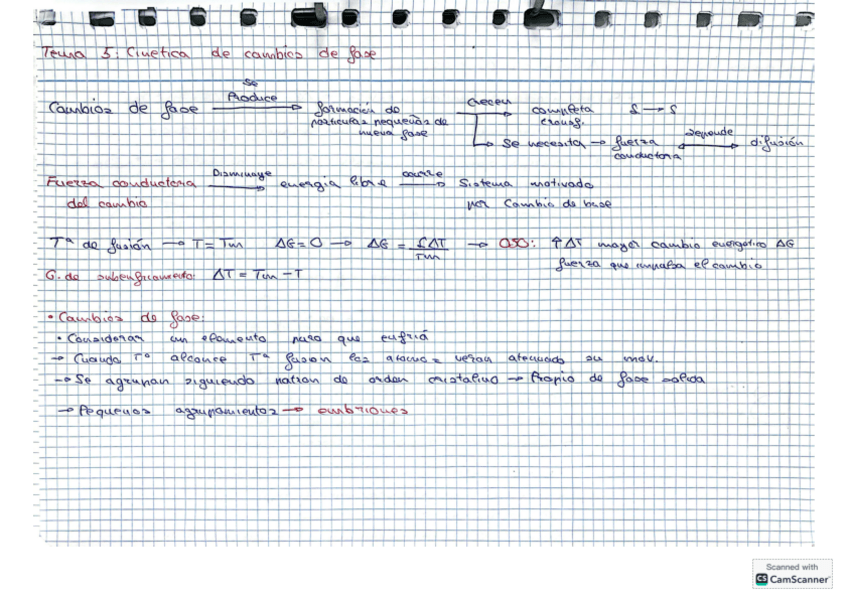 Tema 5: Cinetica de cambios de fase
Cambios de fase se Produce → formación de particulas pequeñas de nueva fase → crecen → completa transf. L → S
↳ Se necesita → fuerza conductora ↔ depende difusión
Fuerza conductora del cambio → Disminuye energia libre → ocurre Sistema motivado por Cambio de fase
Tª de fusión → T = Tm ΔG = 0 → ΔG = LΔT / Tm → OJO: ↑ ΔT mayor cambio energético ΔG
fuerza que empuja el cambio
G. de subenfriamiento: ΔT = Tm - T
• Cambios de fase:
• Considerar un elemento puro que enfría
→ Cuando Tª alcance Tª fusion los atomos veran atenuado su mov.
→ Se agrupan siguiendo patron de orden cristalino → Propio de fase solida
→ Pequeños agrupamientos → embriones
Scanned with
CS CamScanner